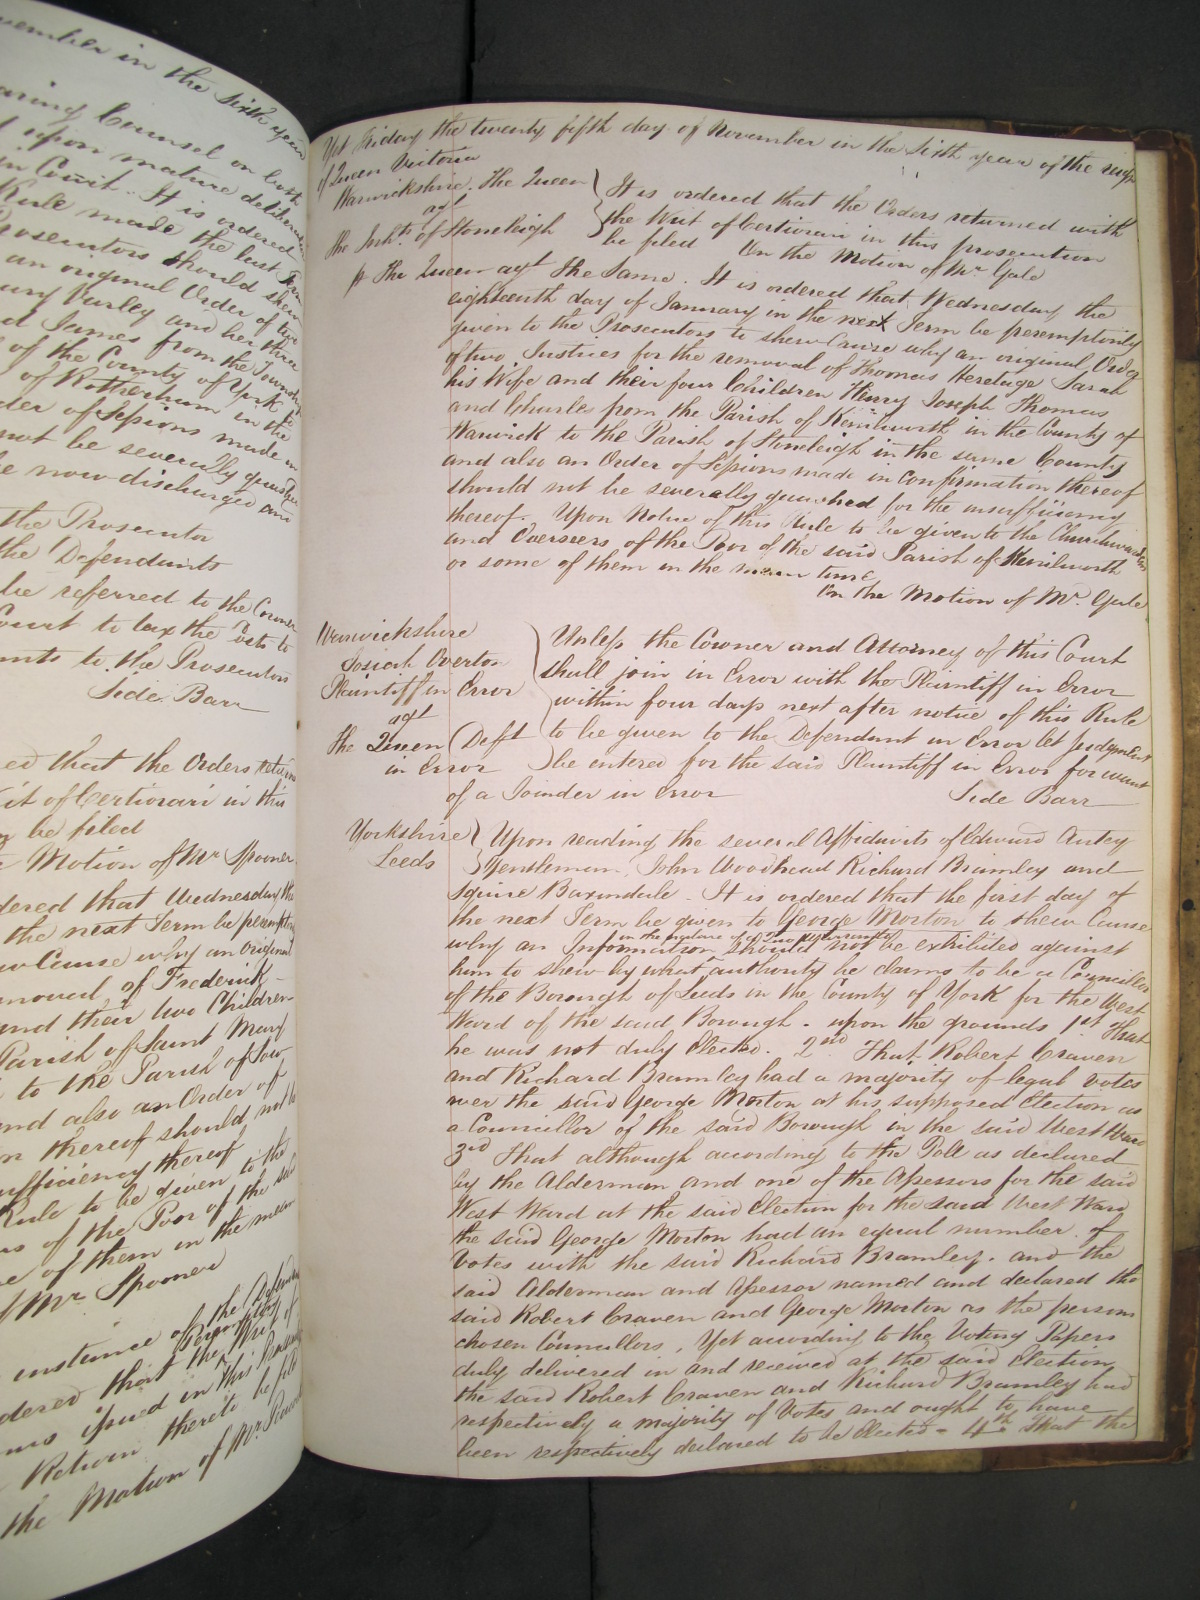 vember in the Sixth year
aring Counsel on both
upon mature deliberation
in Court. It is ordered
Rule made the last Term
rosecutors should shew
an original Order of two
ury Varley and her three
d James from the Township
of the County of York to
of Rotherham in the
der of Sessions made in
not be severally quashed
e now discharged and
the Prosecutor
the Defendants
be referred to the Coroner
ourt to tax the Costs to
nts to the Prosecutors
Side Barr
ed that the Orders return
it of Certiorari in this
y be filed
Motion of Mr Spooner
dered that Wednesday the
the next Term be peremptorily
w Cause why an Original
moval of Frederick
and their two Children
Parish of Saint Mary
to the Parish of Sow
nd also an Order of
n thereof should not b
ufficiency thereof
Rule to be given to the
rs of the Poor of the said
e of them in the mean
f Mr Spooner
instance of the Defend
dered that the Writ of
issued in this Prosecu
Return thereto be filed
the Motion of Mr
Yet Friday the twenty fifth day of November in the Sixth year of the reign
of Queen Victoria
Warwickshire. The Queen
agt
the Inhts. of Stoneleigh
It is ordered that the Orders returned with
the Writ of Certiorari in this prosecution
be filed On the Motion of Mr Gale
pr The Queen agt the Same. It is ordered that Wednesday the
eighteenth day of January in the next Term be peremptorily
given to the Prosecutors to shew Cause why an original Order
of two Justices for the removal of Thomas Heretage Sarah
his Wife and their four Children Henry Joseph Thomas
and Charles from the Parish of Kenilworth in the County of
Warwick to the Parish of Stoneleigh in the same County
and also an Order of Sessions made in Confirmation thereof
should not be severally quashed for the insufficiency
thereof. Upon Notice of this Rule to be given to the Churchwardens
and Overseers of the Poor of the said Parish of Kenilworth
or some of them in the mean time
On the Motion of Mr. Gale
Warwickshire
Josiah Overton
Plaintiff in Error
agt
the Queen Deft
in Error
Unless the Coroner and Attorney of this Court
shall join in Error with the Plaintiff in Error
within four days next after notice of this Rule
to be given to the Defendant in Error let Judgment
be entered for the said Plaintiff in Error for want
of a Joinder in Error Side Barr
Yorkshire
Leeds
Upon reading the several Affidavits of Edward
Gentleman, John Woodhead Richard Bramley and
Squire Baxindale. It is ordered that the first day of
the next Term be given to George Morton to shew Cause
in the nature of a Quo Warranto
why an Information should not be exhibited against
him to shew by what authority he claims to be a Councillor
of the Borough of Leeds in the County of York for the West
Ward of the said Borough. upon the grounds 1st That
he was not duly Elected. 2nd That Robert Craven
and Richard Bramley had a majority of legal votes
over the said George Morton at his supposed Election as
a Councillor of the said Borough in the said West Ward
3rd That although according to the Poll as declared
by the Alderman and one of the Assessors for the said
West Ward at the said Election for the said West Ward
the said George Morton had an equal number of
Votes with the said Richard Bramley. and the
said Alderman and Assessor named and declared the
said Robert Craven and George Morton as the persons
chosen Councillors. Yet according to the Voting Papers
duly delivered in and received at the said Election
the said Robert Craven and Richard Bramley had
respectively a majority of Votes and ought to have
been respectively declared to be Elected - 4th That the